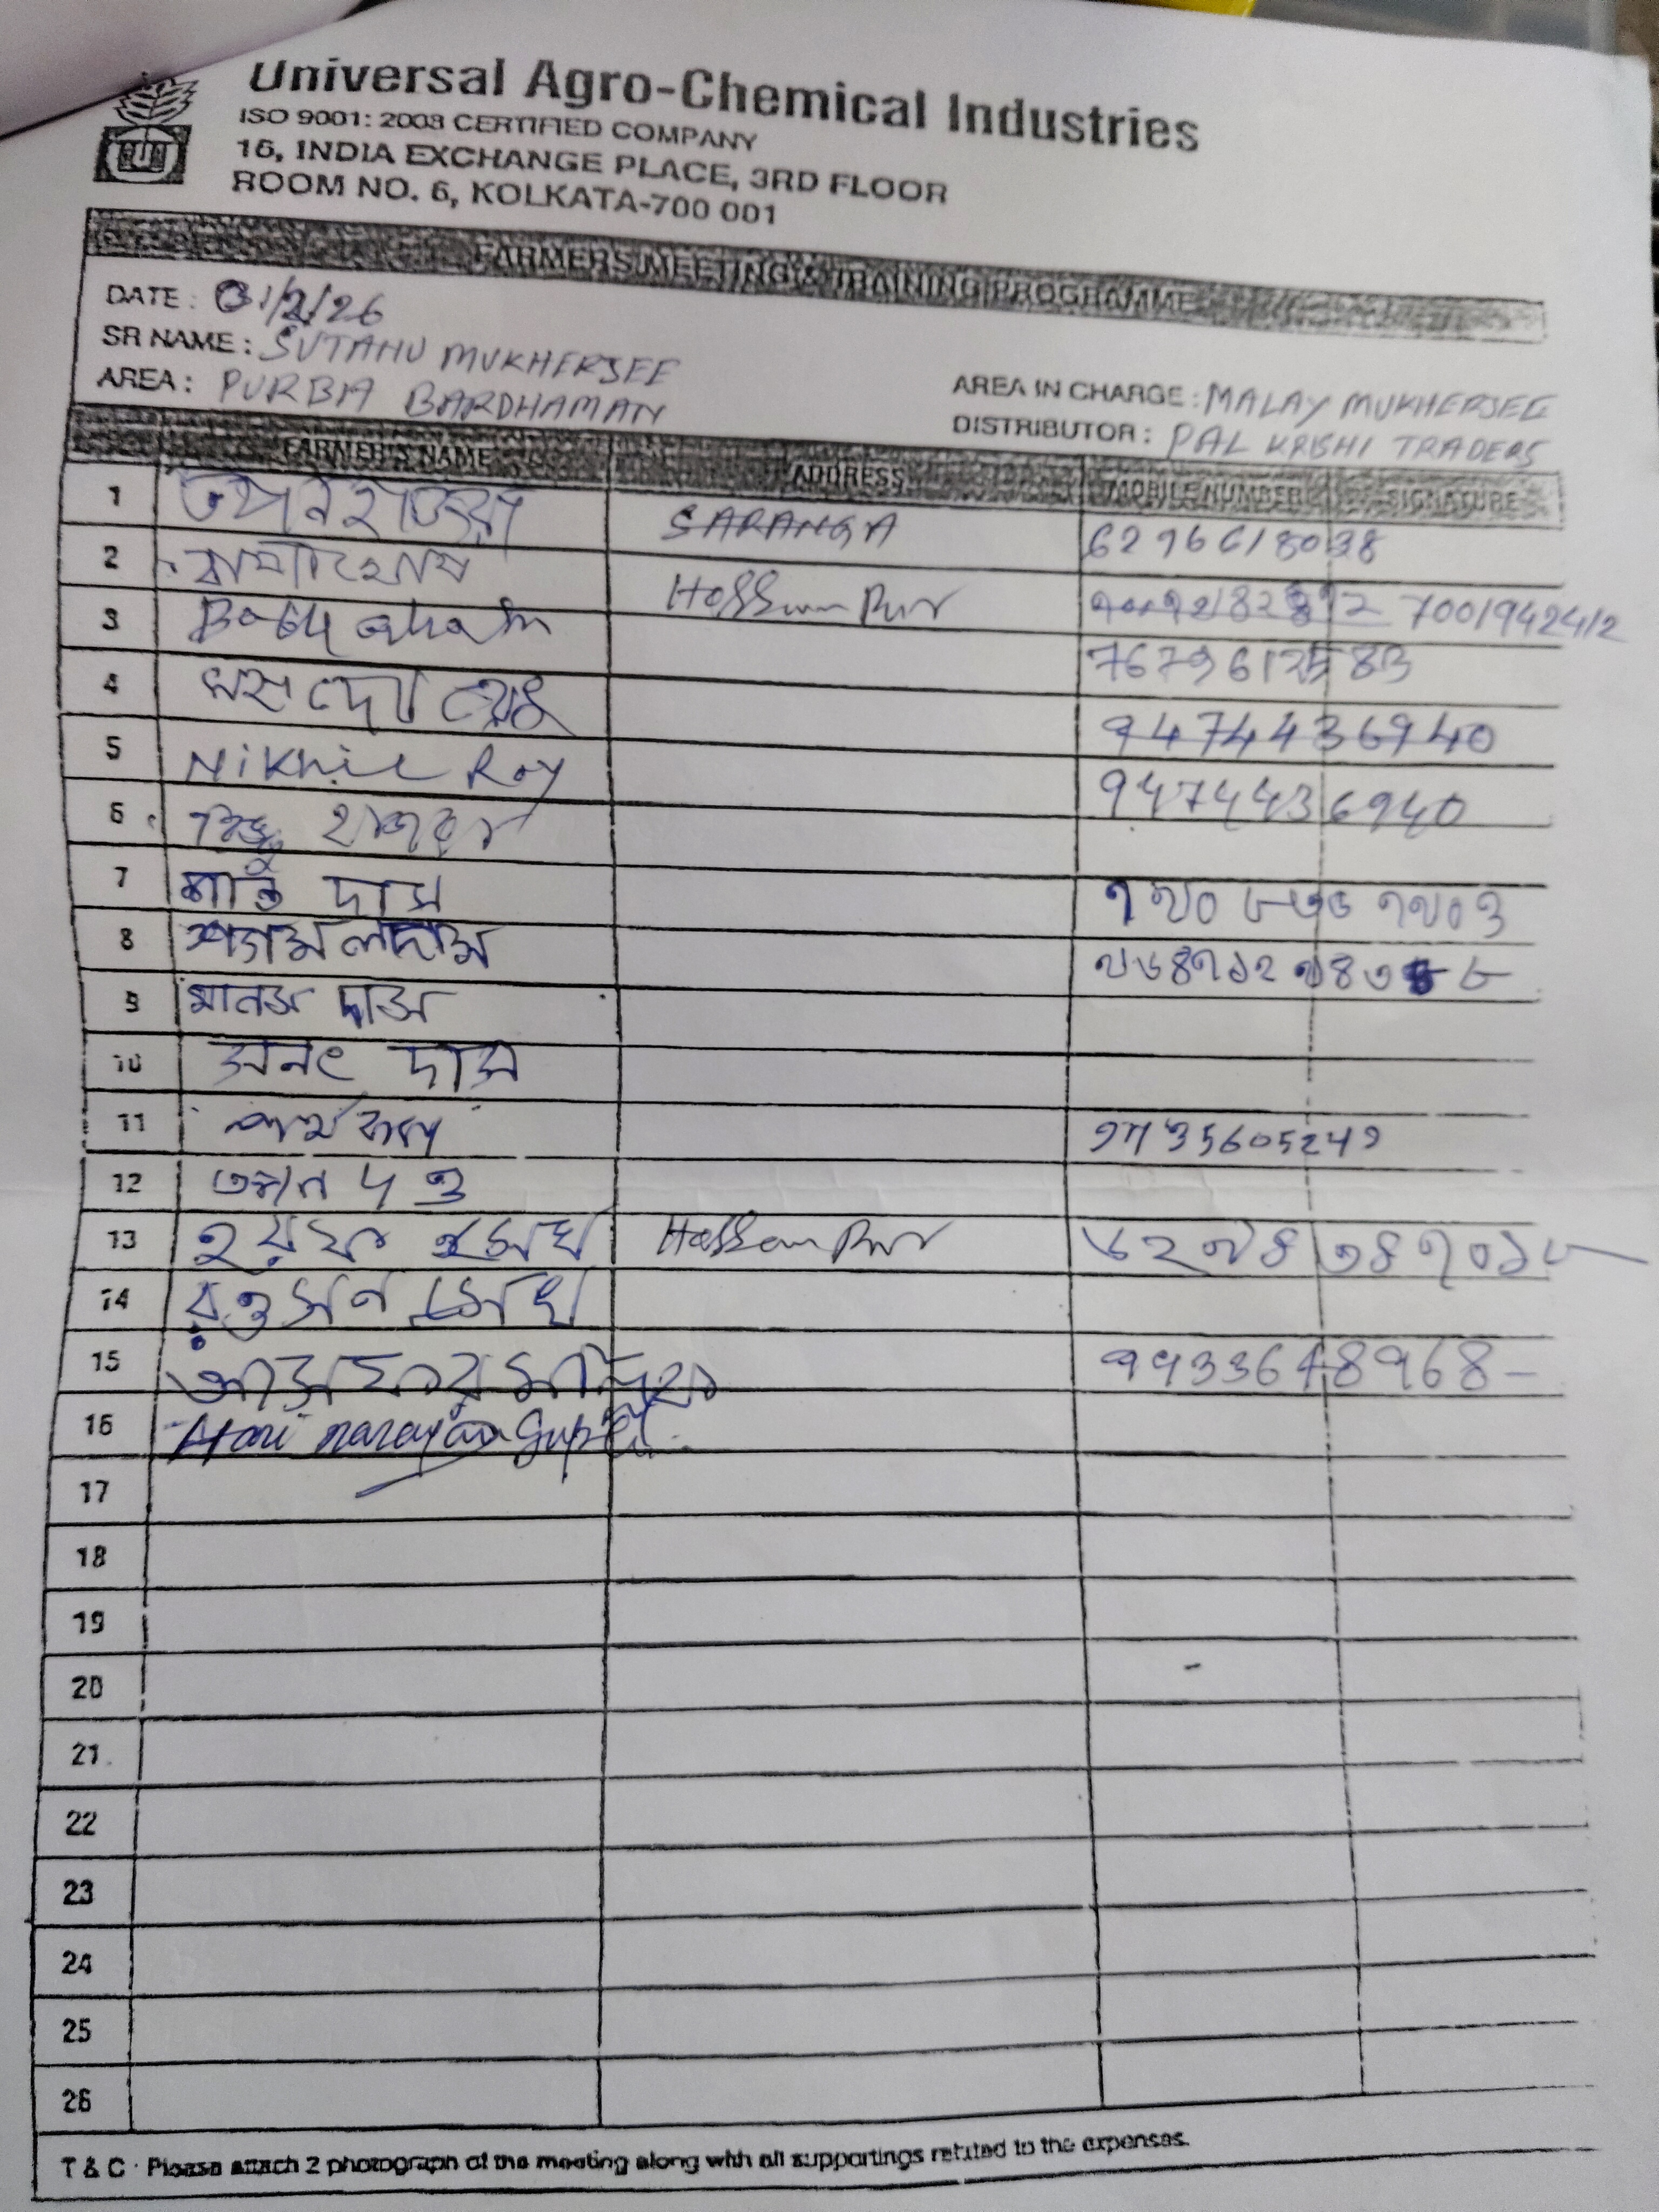 Universal Agro-Chemical Industries
ISO 9001: 2008 CERTIFIED COMPANY
16, INDIA EXCHANGE PLACE, 3RD FLOOR
ROOM NO. 6, KOLKATA-700 001
FARMERS MEETING & TRAINING PROGRAMME
DATE : 01/2/26
SR NAME : SUTANU MUKHERJEE
AREA : PURBA BARDHAMAN
AREA IN CHARGE : MALAY MUKHERJEE
DISTRIBUTOR : PAL KRISHI TRADERS
FARMER'S NAME ADDRESS MOBILE NUMBER SIGNATURE
1 তপন হাজরা SARANGA 6296618038
2 7001942412
3 7679612583
4 9474436940
5 Nikhil Roy 9474436940
6 হাজরা
7 দাস ৭৯০৮৬৬৭৯০৩
8 শ্যামল দাস
9 মানস দাস
10 সনৎ দাস
11 9735605249
12 তপন দত্ত
13 সেখ ৬২৯৪৩৪৭০১৮
14 রওসন সেখ
15 9933648968
16 Hari narayan Gupta
17
18
19
20
21
22
23
24
25
26
T & C : Please attach 2 photograph of the meeting along with all supportings related to the expenses.